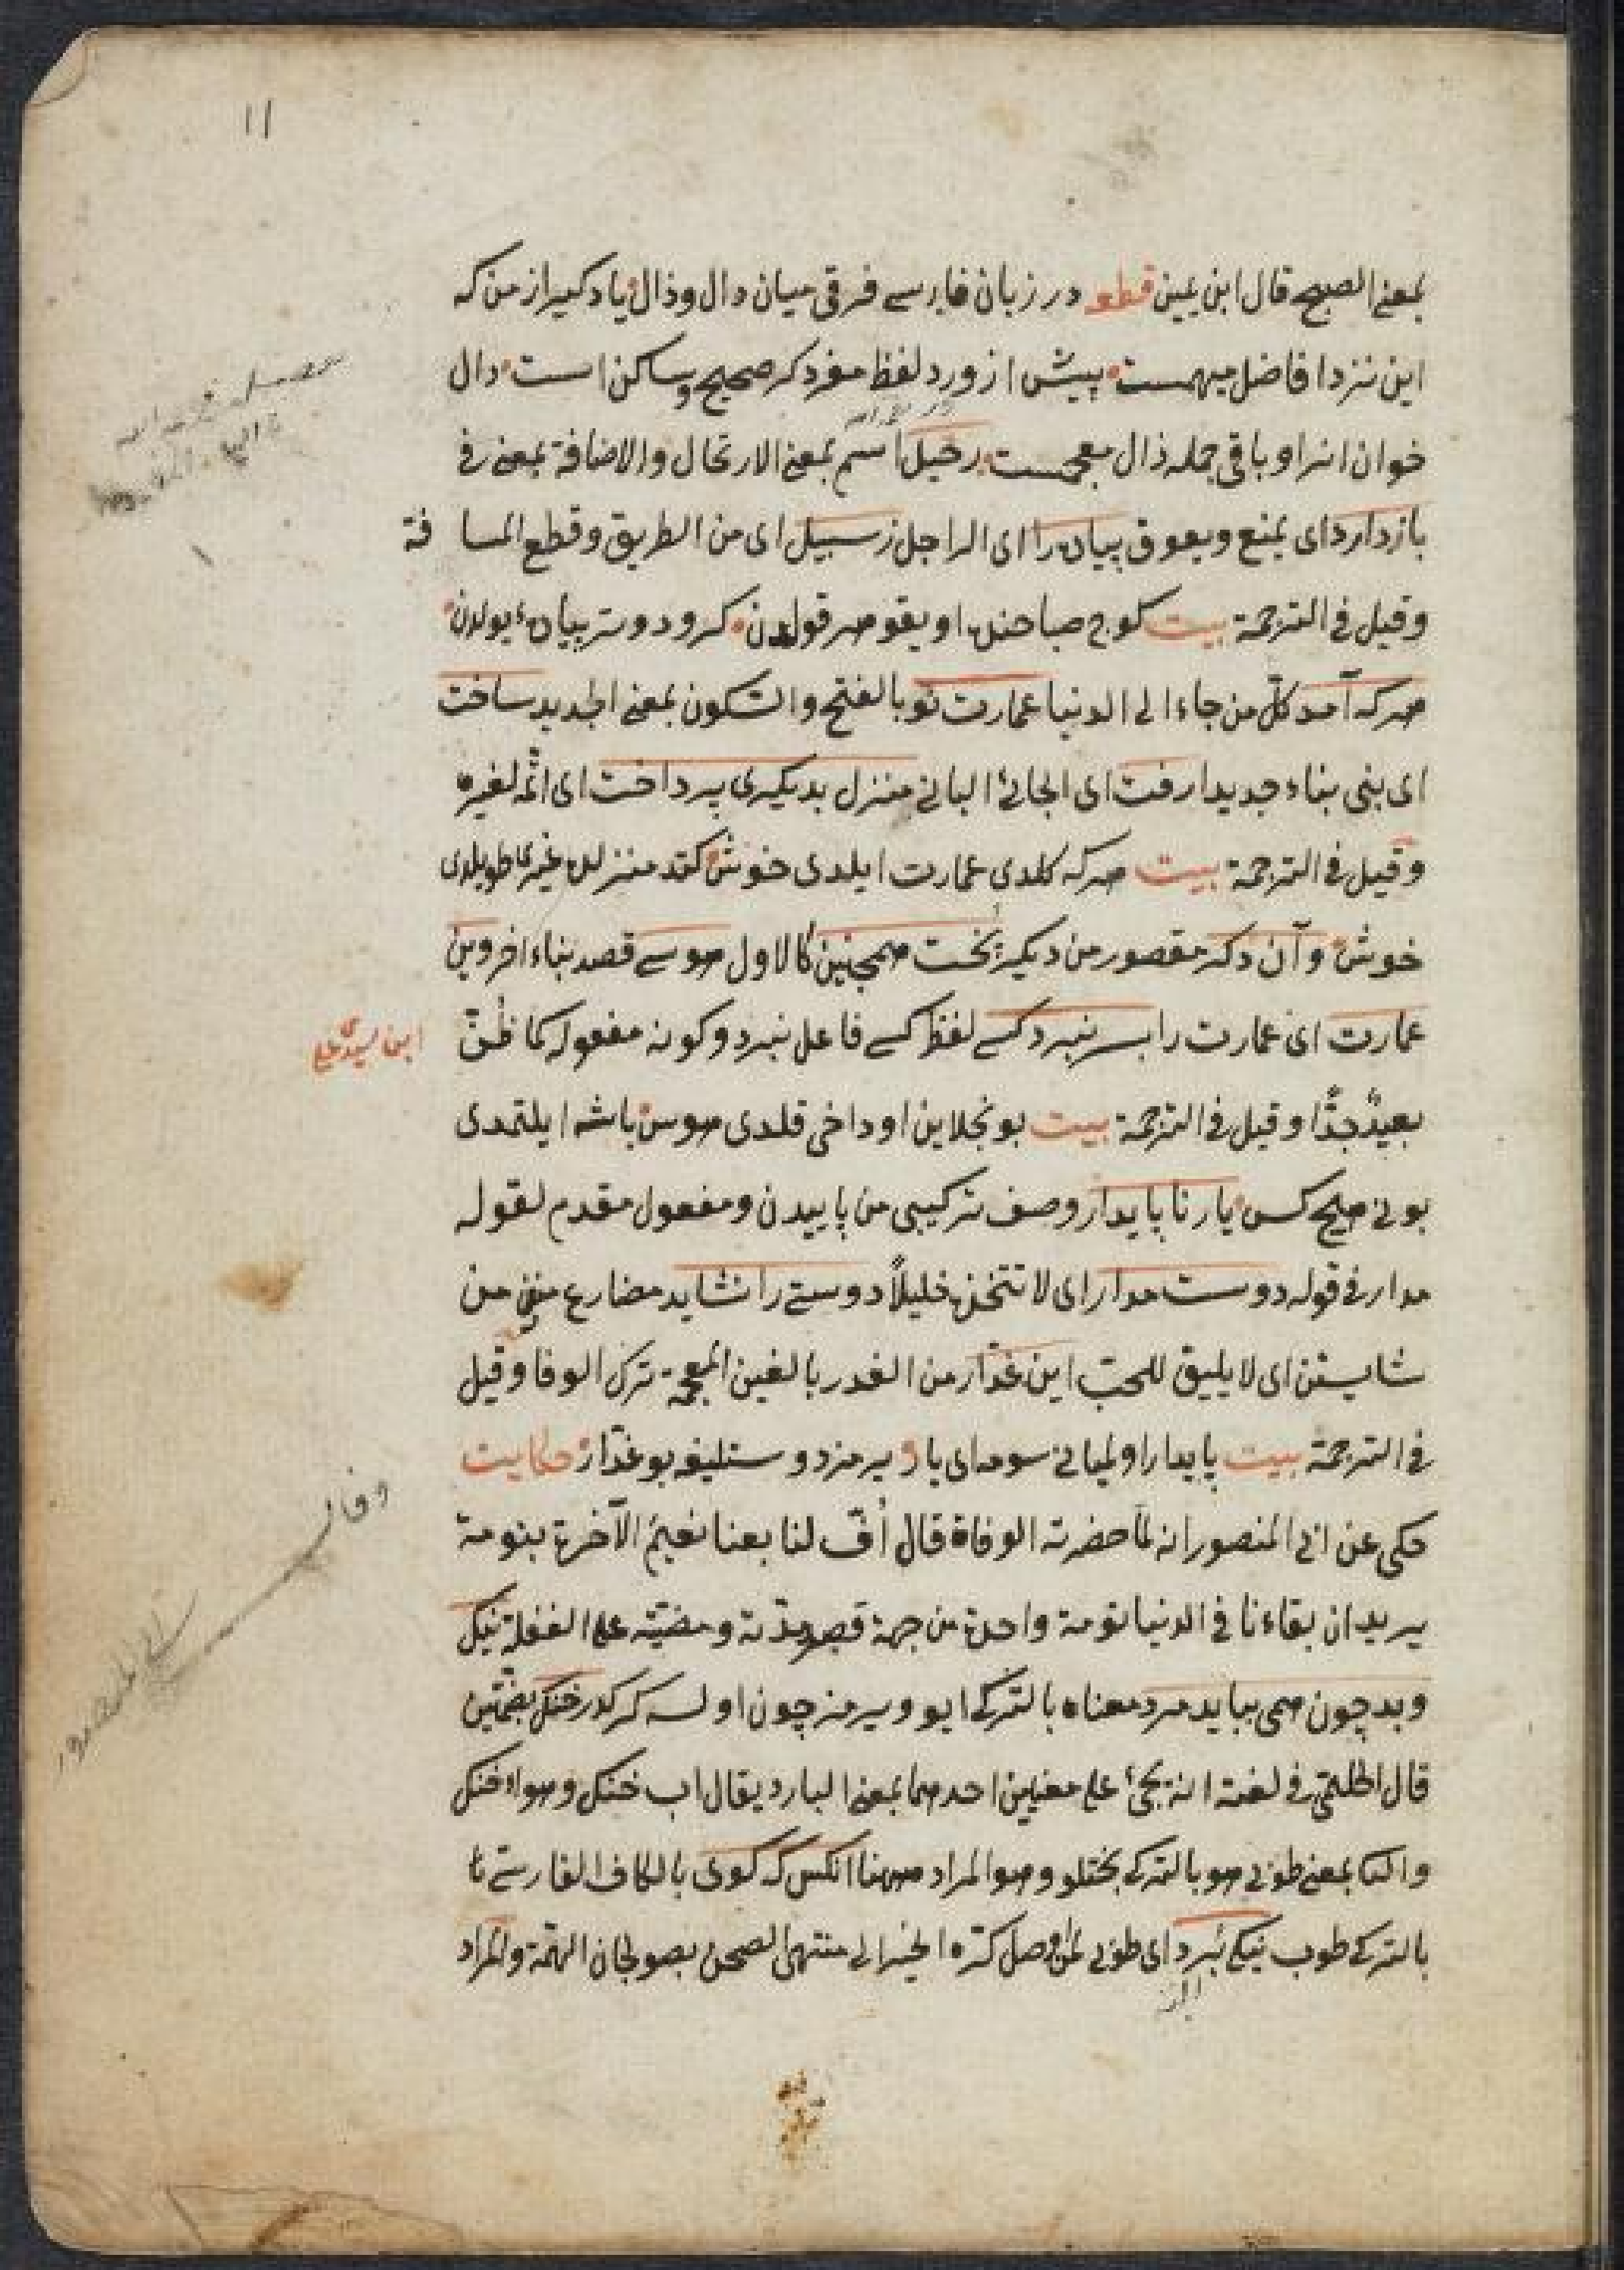 ١١
بمعنى الصبح قال ابن یمین قطعه در زبان فارسے فرقی میان دال وذال یاد کیر از من که
این نزد افاضل مبهمست پیش ازو در لفظ مفرد کر صحیح وساکن است دال
خوان انرا وباقی جمله ذال معجمست رحیل اسم بمعنى الارتحال والاضافة بمعنى فی
بازدارد ای یمنع ویعوق پیاده را ای الراجل ز سبیل ای من الطریق وقطع المسافة
وقیل فی الترجمة بیت کوج صباحنده اویقو هر قولدن کرود وتر پیاده یولدن
هر که آمد کلّ من جاء الى الدنیا عمارت نو بالفتح والسّکون بمعنى الجدید ساخت
ای بنى بناء جدیدا رفت ای الجائی البانی منزل بدیکری پرداخت ای اتمّه لغیره
وقیل فی الترجمة بیت هر که کلدی عمارت ایلدی خوش کتد منزلن غیری طویلدی
خوش وآن دکر مقصور من دیکر پخت همچنین کالاول هوسے قصد بناء افروین
عمارت ای عمارت را بسر نبرد کسے لفظ کسے فاعل نبرد وکونه مفعوله کما ظُنّ
ابن سید علی
بعیدٌ جدًّا وقیل فی الترجمة بیت بونجلاین او داخی قلدی هوس باشه ایلتمدی
بونی هیچ کس یار ناپایدار وصف ترکیبی من پاییدن ومفعول مقدم لقوله
مدار فی قوله دوست مدار ای لا تتخذه خلیلاً دوستے را نشاید مضارع منفی من
شایستن ای لا یلیق للمحبّ این غدّار من الغدر بالغین المعجمة ترک الوفا وقیل
فی الترجمة بیت پایدار اولمیانی سومه ای یار یرمز دوستلیغه بو غدّار حکایت
حکى عن ابی المنصور انه لمّا حضرته الوفاة قال اُفّ لنا بعنا نعیم الآخرة بنومة
یرید ان بقاءنا فی الدنیا نومة واحدة من جهة قصر مدّته ومضیّه على الغفلة نیک
وبد چون همی بباید مرد معناه بالترکے ایو ویرمز چون اولسه کرکدر خنک بضمّتین
قال الحلیمی فی لغته انه یجئ على معنیین احدهما بمعنى البارد یقال اب خنک وهواء خنک
والثا بمعنى طوبی هو بالترکے بختلو وهو المراد ههنا انکس که کوی بالکاف الفارسے تا
بالترکے طوب نیکے ببرد ای طوبی لمن وصل کرة الخیر الى منتهى الصحن بصولجان الهمّة والمراد
وفات
ابی المنصور